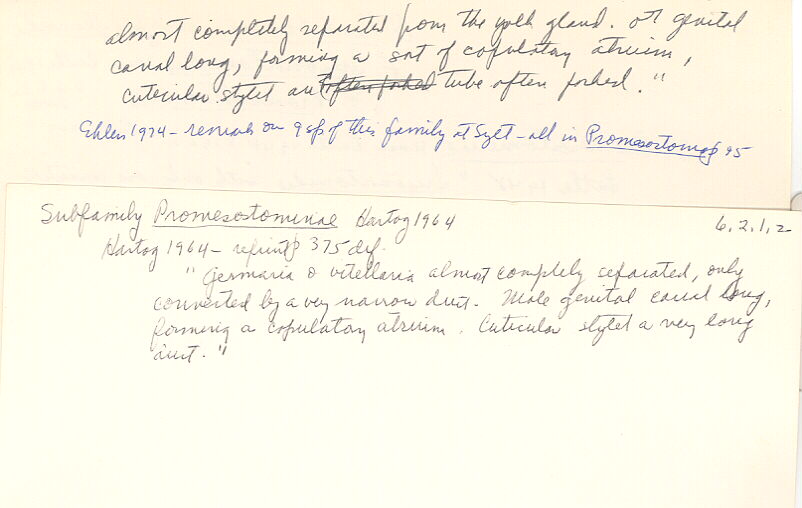 almost completely separated from the yolk gland. ♂ genital
canal long, forming a sort of copulatory atrium,
cuticular stylet an often forked tube often forked."
Ehlers 1974 – remarks on 9 sp of this family at Sylt – all in Promesostoma p 95
Subfamily Promesostominae Hartog 1964
6.2.1.2
Hartog 1964 – reprint p 375 def.
"Germaria & vitellaria almost completly separated, only
connected by a very narrow duct. Male genital canal long,
forming a copulatory atrium. Cuticular stylet a very long
duct."